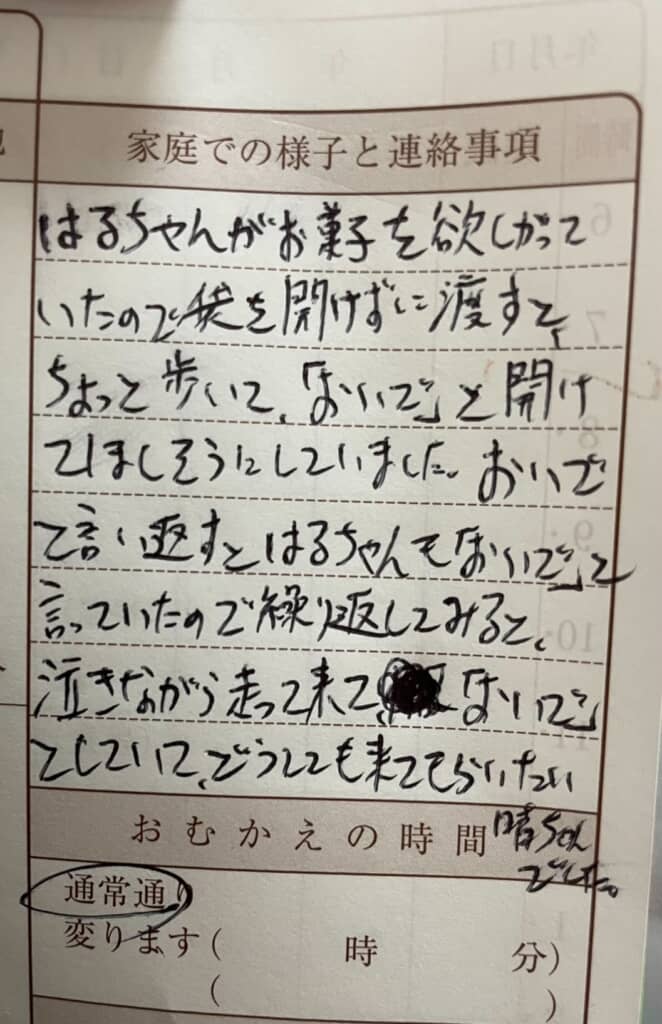 家庭での様子と連絡事項
はるちゃんがお菓子を欲しがって
いたので袋を開けずに渡すと、
ちょっと歩いて、「おいで」と開け
てほしそうにしていました。おいで
と言い返すとはるちゃんも「おいで」と
言っていたので繰り返してみると、
泣きながら走って来て、「おいで」
としていて、どうしても来てもらいたい
晴ちゃん
でした。
おむかえの時間
通常通り
変ります( 時 分)
( )